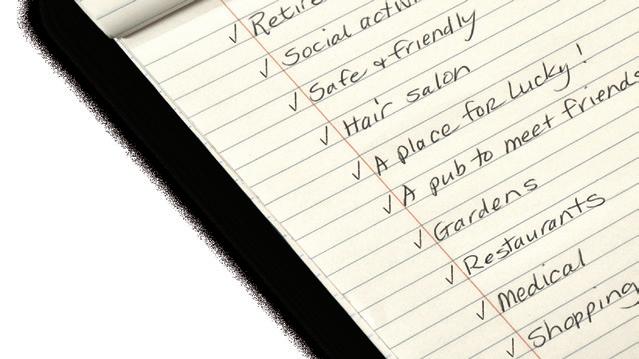 ✓ Retire
✓ Social activi
✓ Safe & friendly
✓ Hair salon
✓ A place for lucky!
✓ A pub to meet friends
✓ Gardens
✓ Restaurants
✓ Medical
✓ Shopping